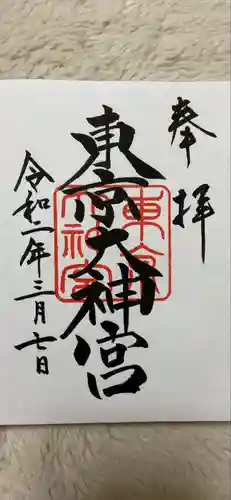 奉拝
東京大神宮
令和二年三月七日
東京大神宮